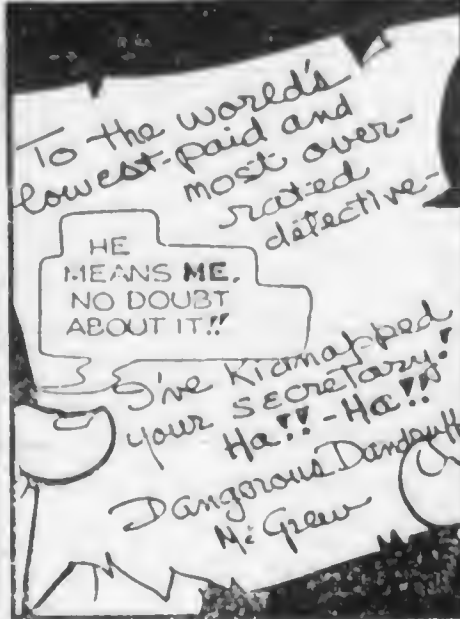 To the world's
lowest-paid and
most over-
rated
detective-
HE
MEANS ME,
NO DOUBT
ABOUT IT!!
I've Kidnapped
your secretary!
Ha!!-Ha!!
Dangorous Dandruff
McGrew